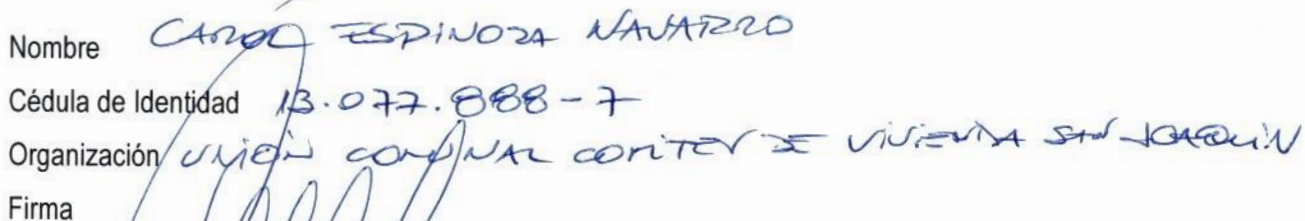 Nombre CAROL ESPINOZA NAVARRO
Cédula de Identidad 13.077.888-7
Organización UNIÓN COMUNAL COMITES DE VIVIENDA SAN JOAQUIN
Firma